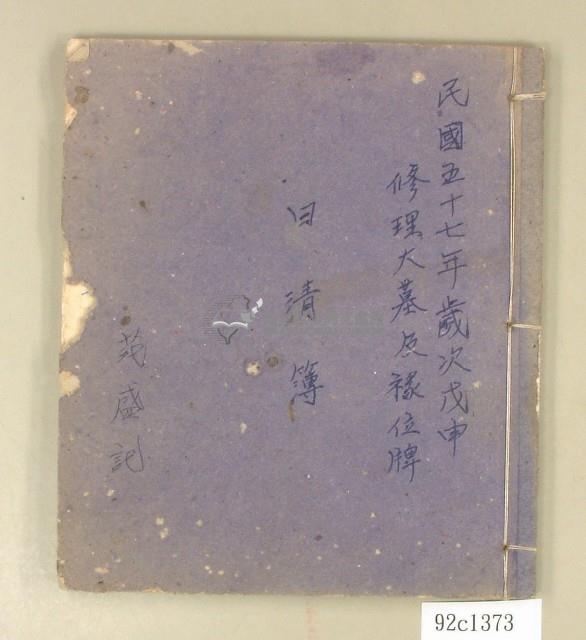 民國五十七年歲次戊申
修理大墓及祿位牌
日清簿
苑盛記
92c1373